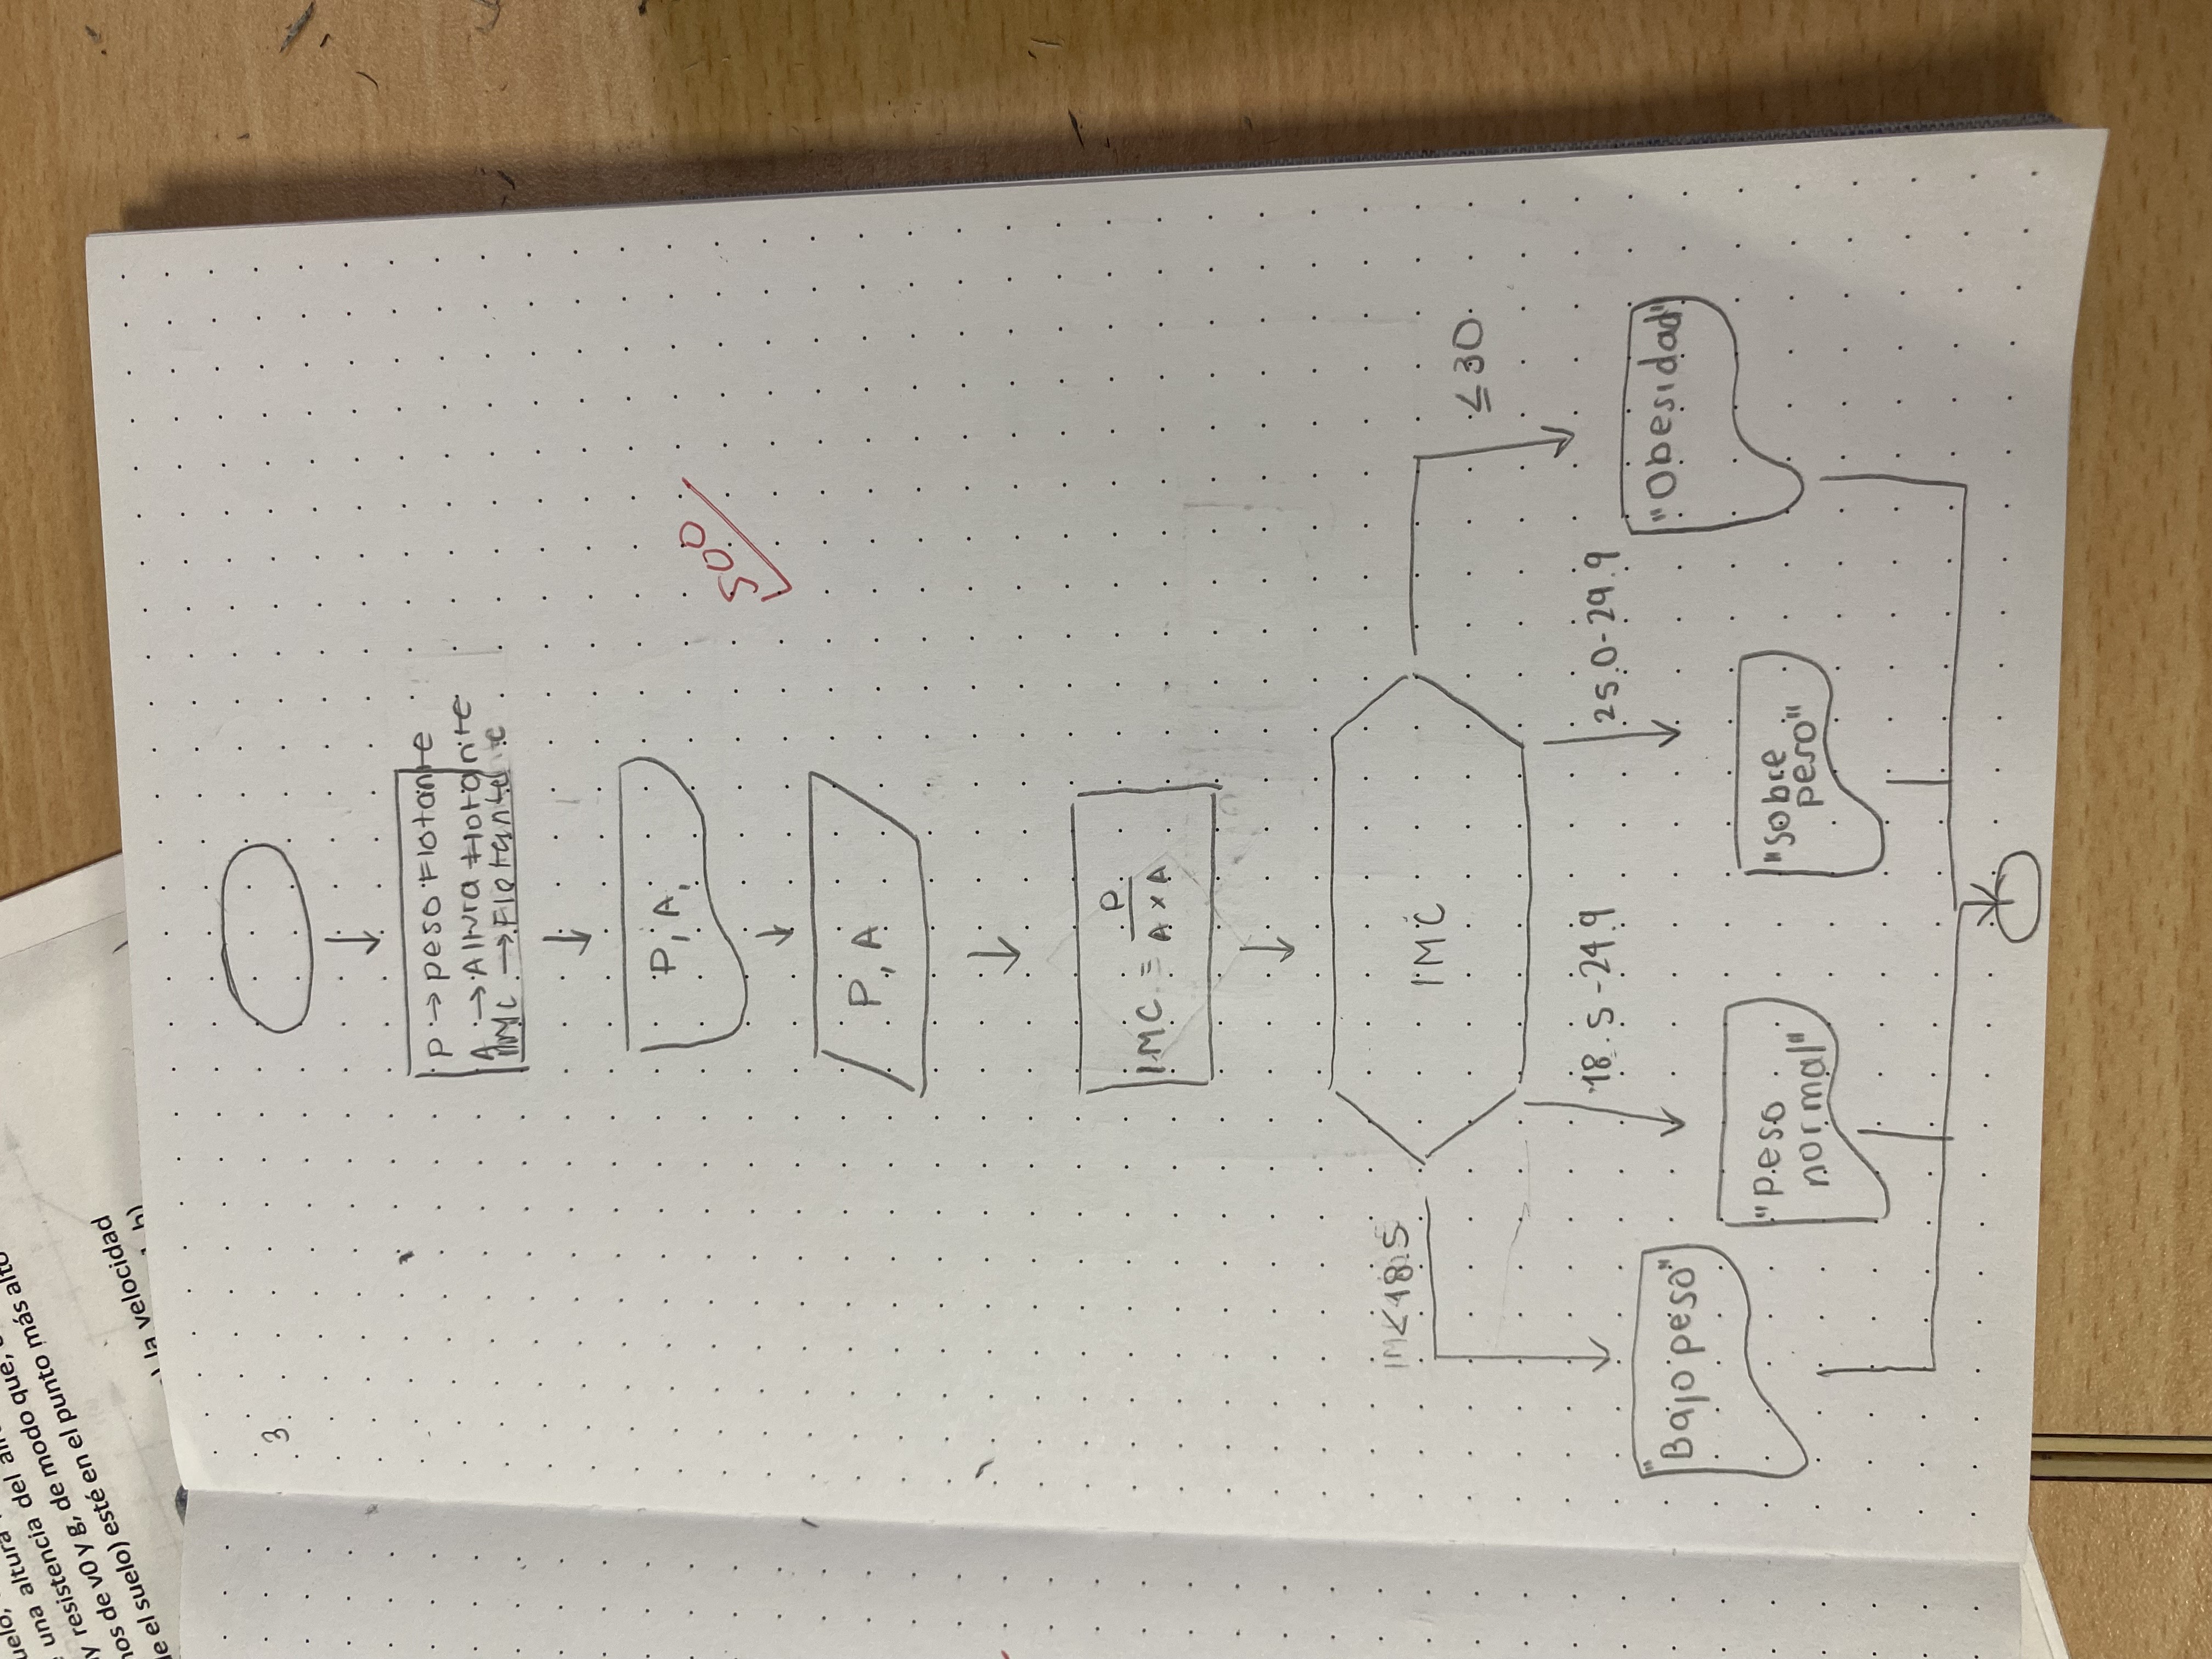 una altura
resistencia del
nos de v0 y g, de modo que,
e el suelo) esté en el punto más alto
la velocidad
3
P → peso Flotante
A → Altura flotante
IMC → Flotante
P, A,
500
P, A
IMC = P
A x A
<18.5
IMC
≤30
18.5-24.9
25.0-29.9
"Bajo peso"
"Obesidad"
"Peso
normal"
"Sobre
peso"